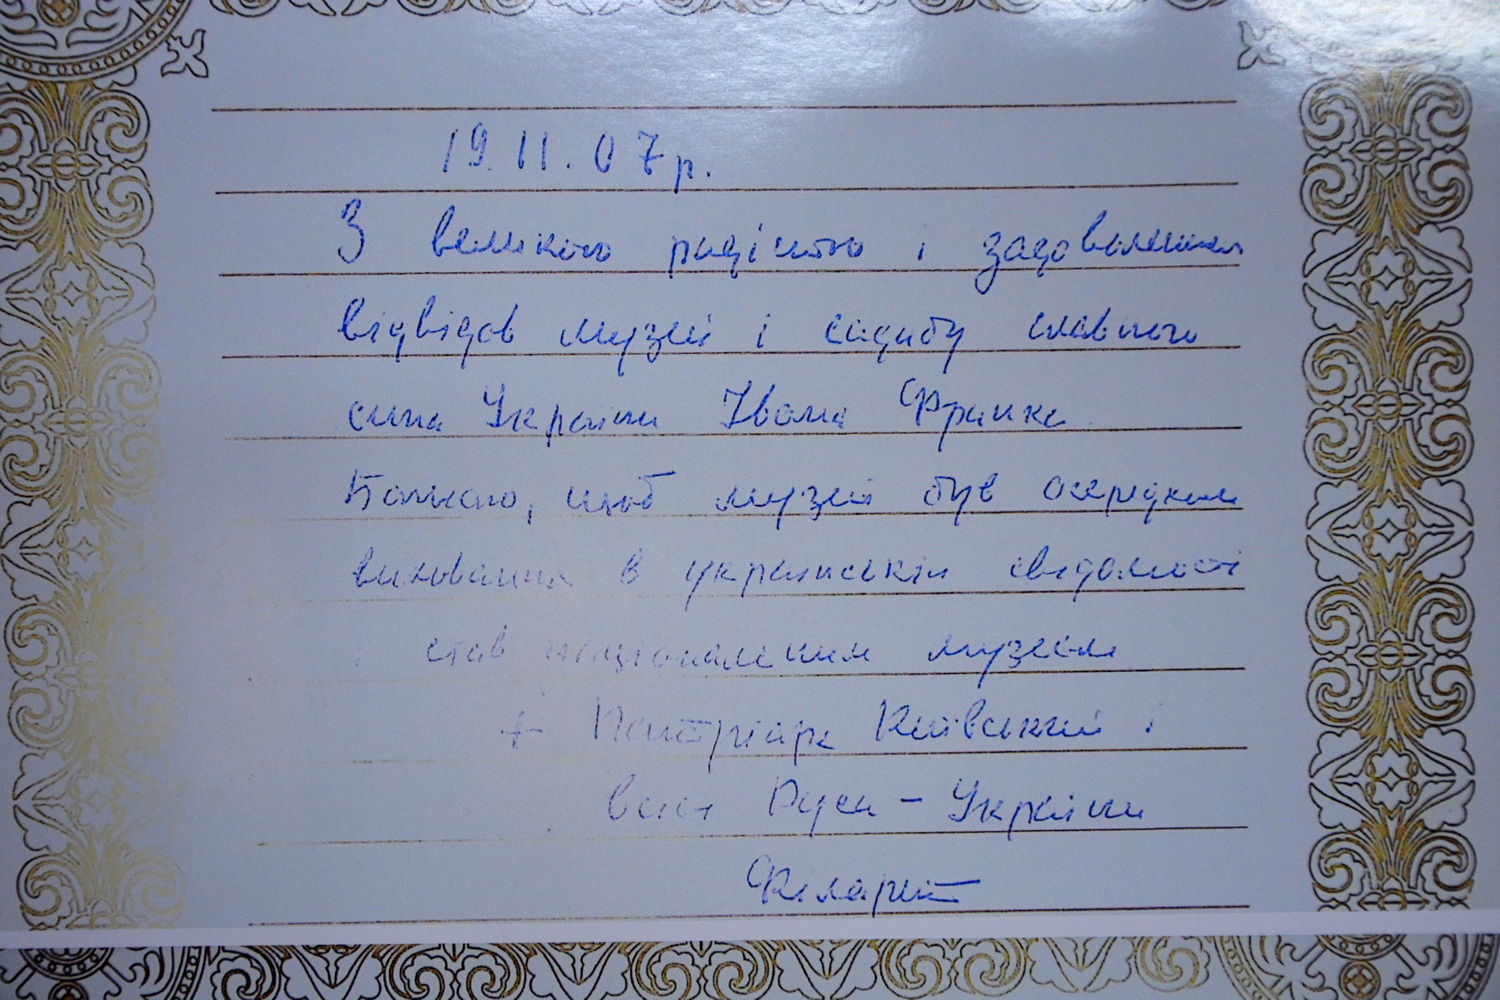 19.11.07р.
З великою радістю і задоволенням
відвідав музей і садибу славного
сина України Івана Франка.
Бажаю, щоб музей був осередком
виховання в українській свідомості
і став національним музеєм
+ Патріарх Київський і
всієї Руси - України
Філарет